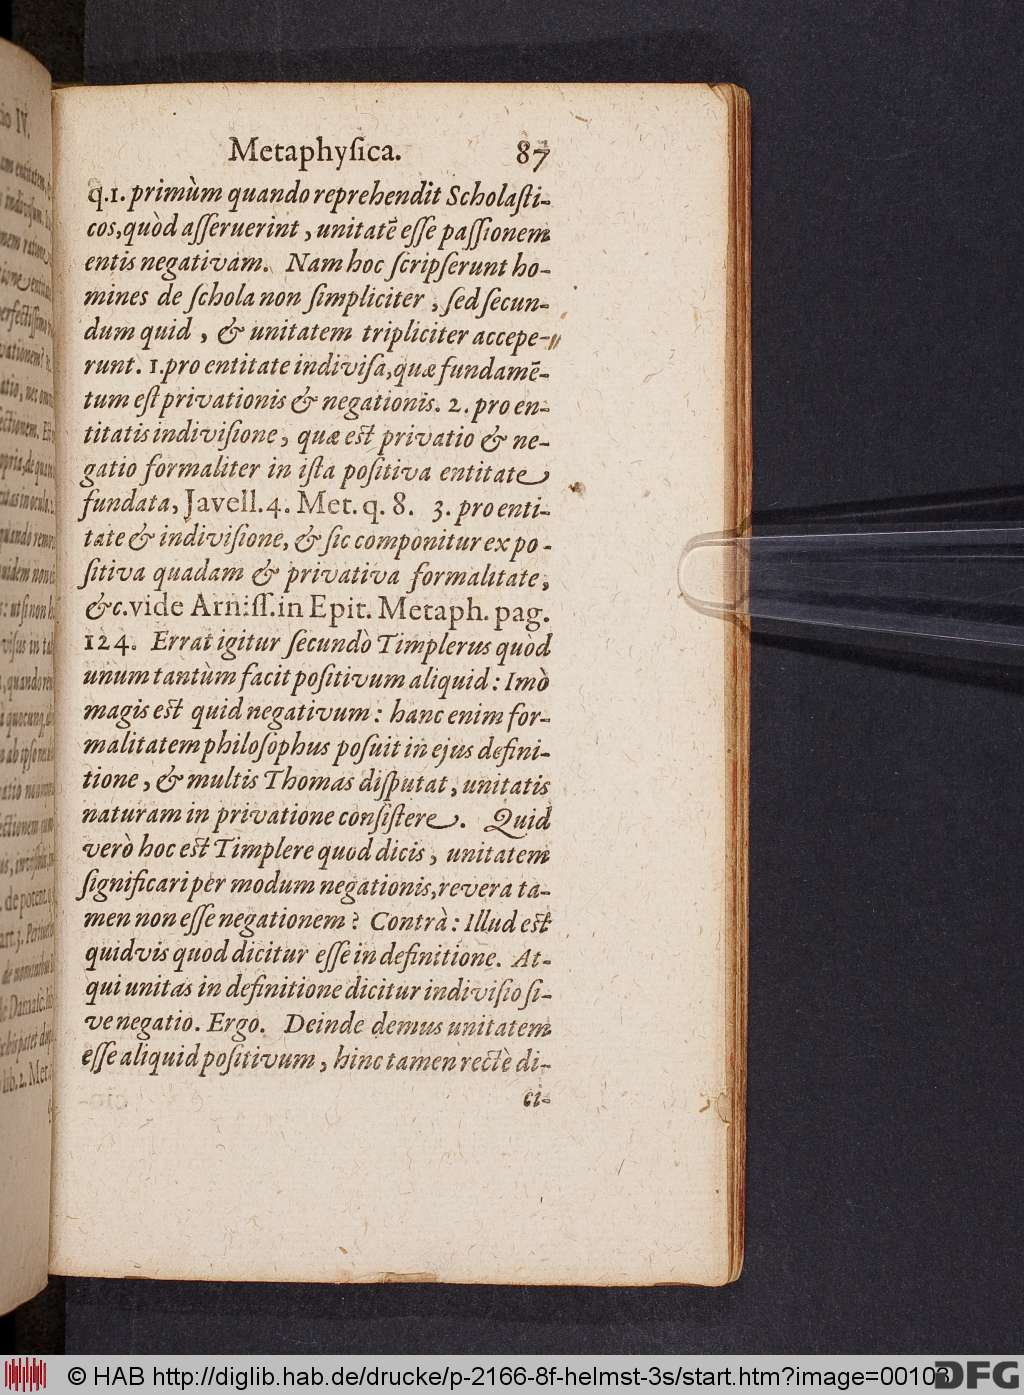 Metaphyſica. 87
q.1. primùm quando reprehendit Scholaſti-
cos, quòd aſſeruerint, unitatē eſſe paſſionem
entis negativam. Nam hoc ſcripſerunt ho-
mines de ſchola non ſimpliciter, ſed ſecun-
dum quid, & unitatem tripliciter accepe-
runt. 1. pro entitate indiviſa, quæ fundamē-
tum eſt privationis & negationis. 2. pro en-
titatis indiviſione, quæ est privatio & ne-
gatio formaliter in iſta poſitiva entitate
fundata, Javell. 4. Met. q. 8. 3. pro enti-
tate & indiviſione, & ſic componitur ex po-
ſitiva quadam & privativa formalitate,
&c. vide Arniſſ. in Epit. Metaph. pag.
124. Errat igitur ſecundò Timplerus quòd
unum tantùm facit poſitivum aliquid: Imò
magis est quid negativum: hanc enim for-
malitatem philoſophus poſuit in ejus defini-
tione, & multis Thomas diſputat, unitatis
naturam in privatione conſiſtere. Quid
verò hoc est Timplere quod dicis, unitatem
ſignificari per modum negationis, revera ta-
men non eſſe negationem? Contrà: Illud est
quidvis quod dicitur eſſe in definitione. At-
qui unitas in definitione dicitur indiviſio ſi-
ve negatio. Ergo. Deinde demus unitatem
eſſe aliquid poſitivum, hinc tamen rectè di-
ci-
© HAB http://diglib.hab.de/drucke/p-2166-8f-helmst-3s/start.htm?image=00103
DFG